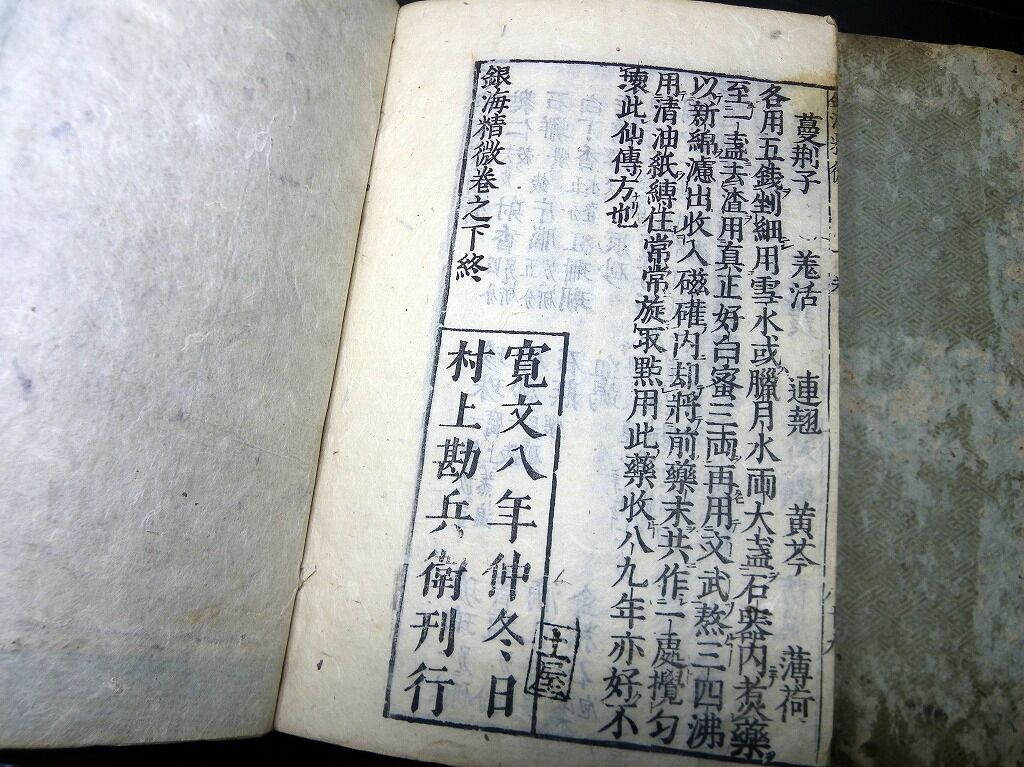 蔓荆子 羗活 連翹 黄芩 薄荷
各用五錢剉細用雪水或臘月水両大盞石器内煑藥
至一盞去渣用真正好白蜜三両再用文武熬三四沸
以新綿濾出收入磁礶内却將前藥末共作一處攪匀
用清油紙縛住常常旋取㸃用此藥收八九年亦好不
壞此仙傳方也
銀海精微巻之下終
寛文八年仲冬日
村上勘兵衛刊行
土屋